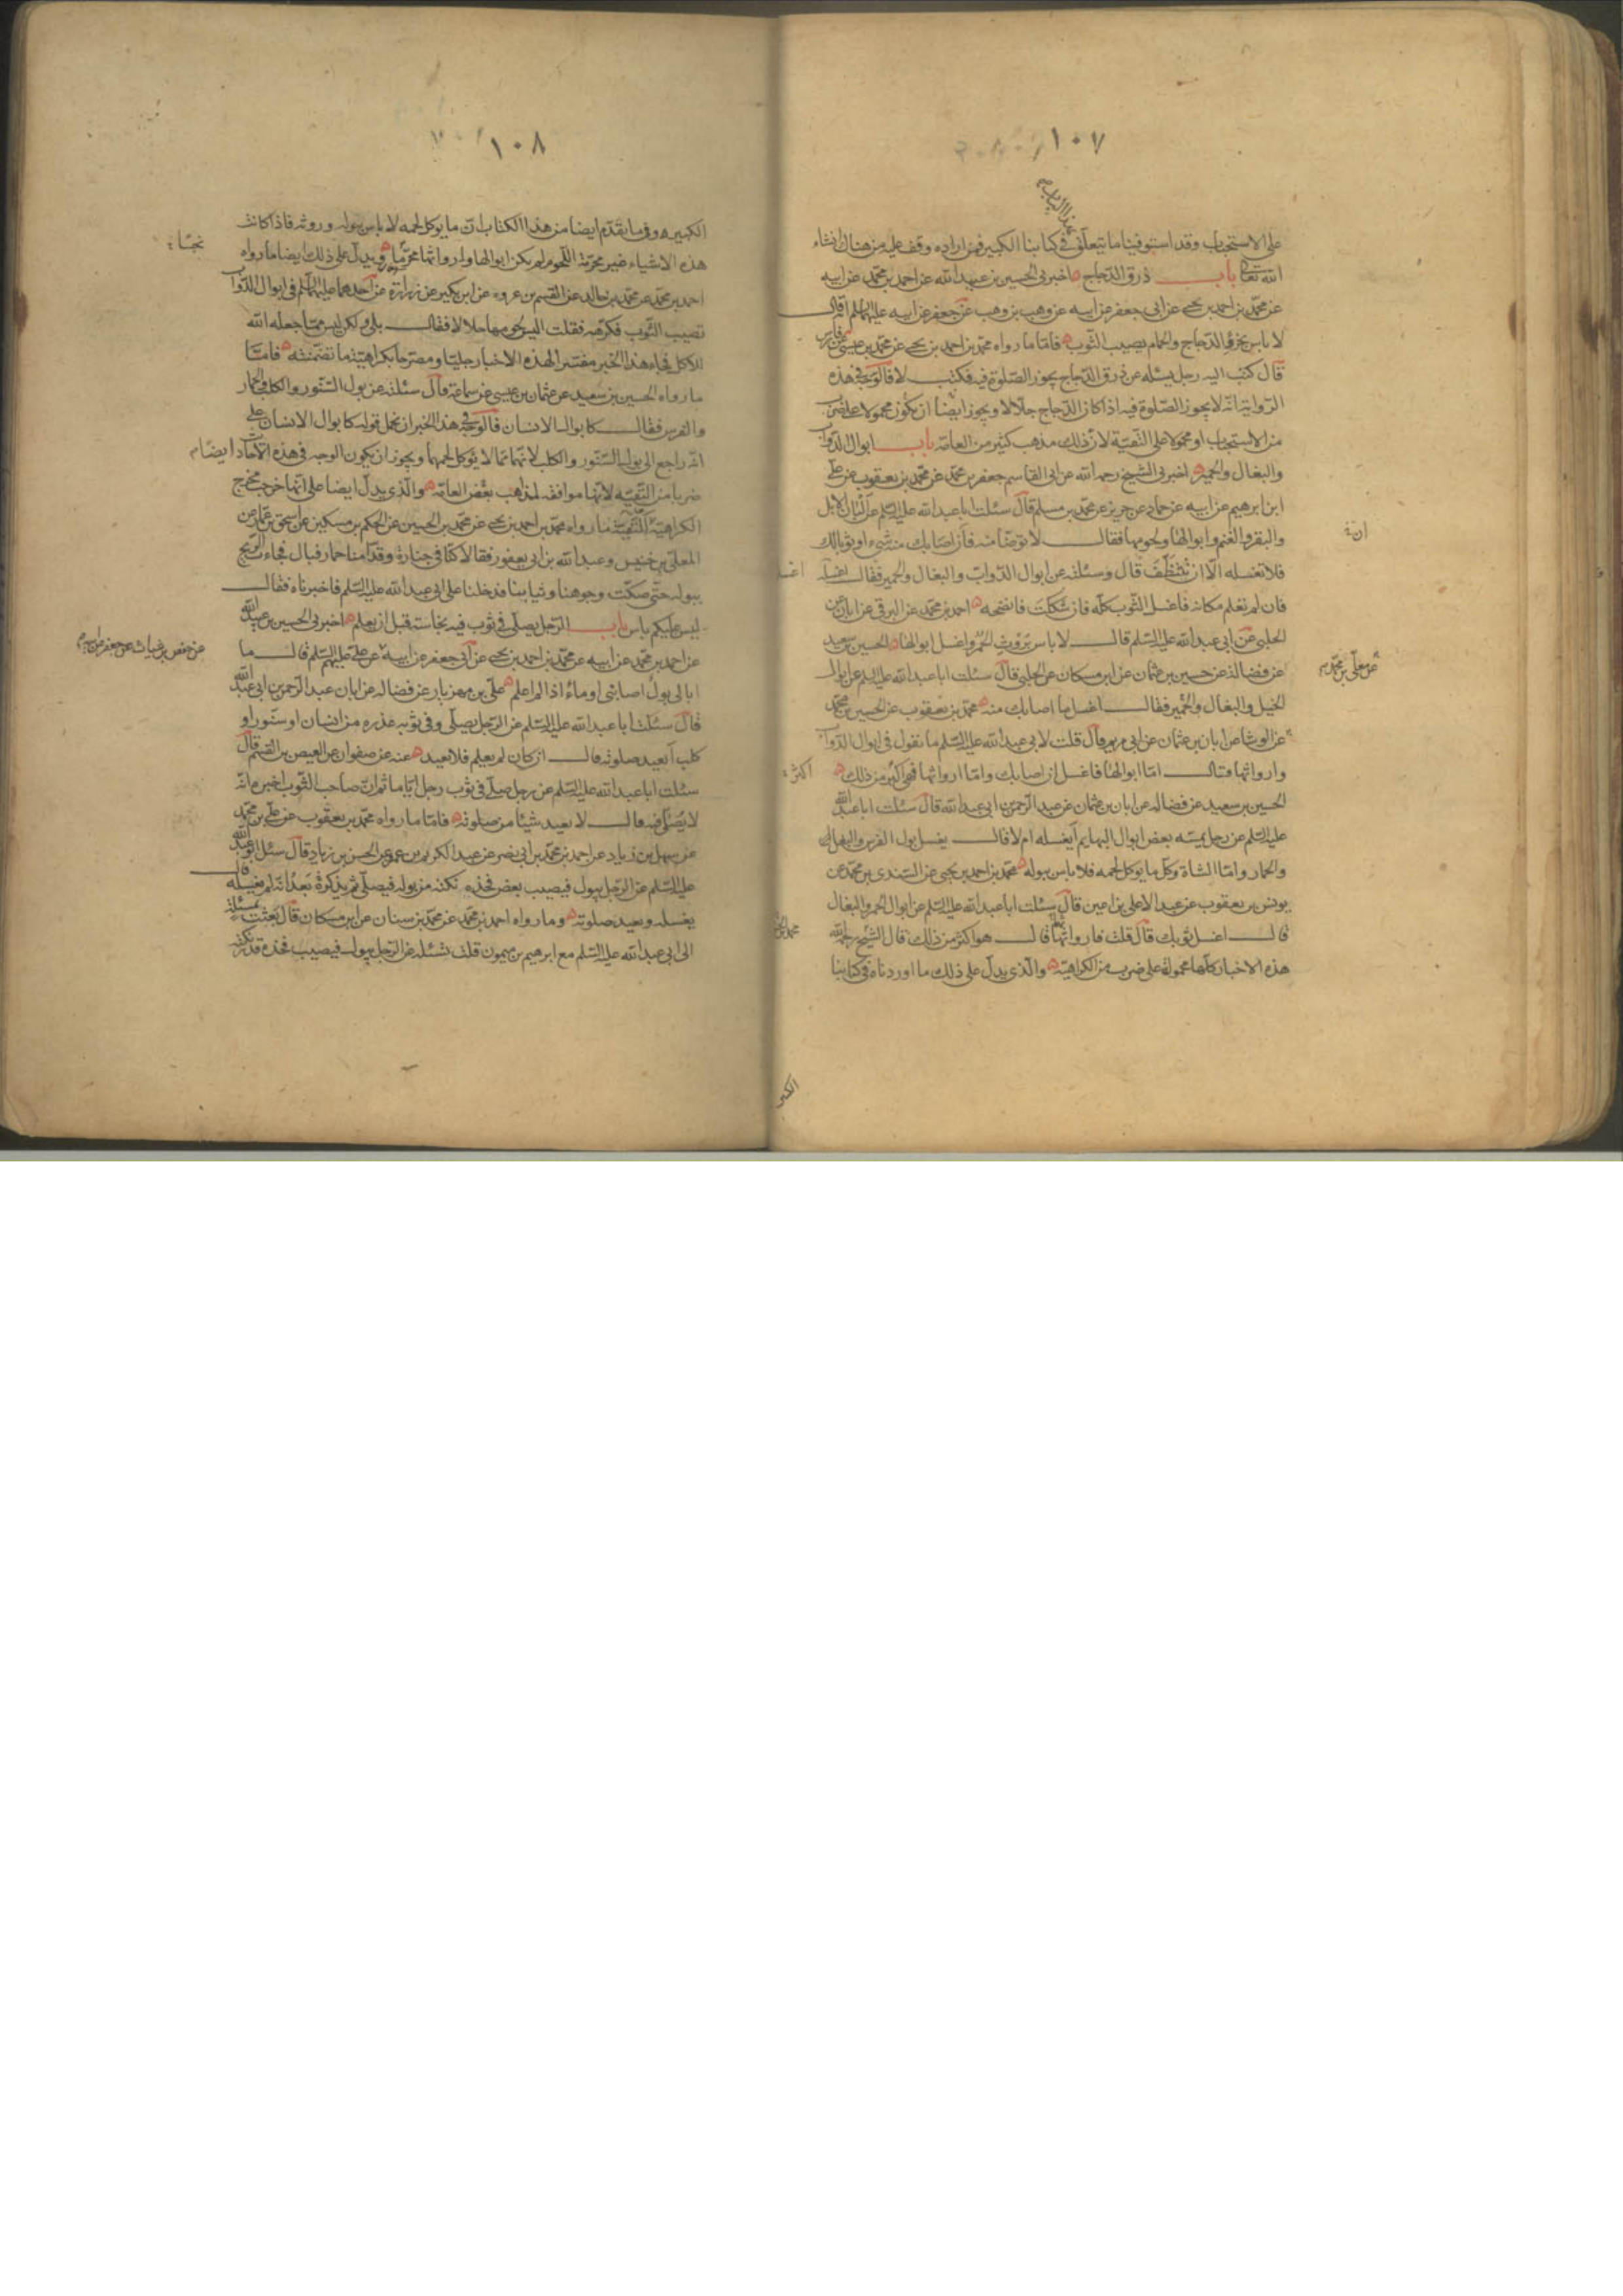 ١٠٧
على الاستحباب وقد استوفينا ما يتعلق في كتابنا الكبير فمن اراده وقف عليه من هناك انشاء
بهذا الباب
الله تعالى باب ذرق الدجاج اخبرني الحسين بن عبيد الله عن احمد بن محمد عن ابيه
عن محمد بن احمد بن يحيى عن ابي جعفر عن ابيه عن وهب بن وهب عن جعفر عن ابيه عليهما السلم قال
لا باس بخرؤ الدجاج والحمام يصيب الثوب فاما ما رواه محمد بن احمد بن يحيى عن محمد بن عيسى عن فارس
قال كتب اليه رجل يسئله عن ذرق الدجاج يجوز الصلوة فيه فكتب لا فالوجه في هذه
الرواية انه لا يجوز الصلوة فيه اذا كان الدجاج جلالا ويجوز ايضا ان يكون محمولا على ضرب
من الاستحباب او محمولا على التقية لان ذلك مذهب كثير من العامه باب ابوال الدواب
والبغال والحمير اخبرني الشيخ رحمه الله عن ابي القاسم جعفر بن محمد عن محمد بن يعقوب عن علي
ابن ابرهيم عن ابيه عن حماد عن حريز عن محمد بن مسلم قال سئلت ابا عبد الله عليه السلم عن البان الابل
والبقر والغنم وابوالها ولحومها فقال لا توضأ منه فان اصابك منه شيء او ثوبا لك
فلا تغسله الا ان تتنظف قال وسئلته عن ابوال الدواب والبغال والحمير فقال اغسله
فان لم تعلم مكانه فاغسل الثوب كله فان شككت فانضحه احمد بن محمد عن البرقي عن ابان عن
الحلبي عن ابي عبد الله عليه السلم قال لا باس بروث الحمر واغسل ابوالها الحسين بن سعيد
عن فضالة عن حسين بن عثمان عن ابن مسكان عن الحلبي قال سئلت ابا عبد الله عليه السلم عن ابوال
عن معلى بن محمد
الخيل والبغال والحمير فقال اغسل ما اصابك منه محمد بن يعقوب عن الحسين بن محمد
عن الوشا عن ابان بن عثمان عن ابي مريم قال قلت لابي عبد الله عليه السلم ما تقول في ابوال الدواب
وارواثها فقال اما ابوالها فاغسل ان اصابك واما ارواثها فهي اكثر من ذلك
اكثر
الحسين بن سعيد عن فضاله عن ابان بن عثمان عن عبد الرحمن بن ابي عبد الله قال سئلت ابا عبد الله
عليه السلم عن رجل يمسه بعض ابوال البهايم أيغسله ام لا قال يغسل بول الفرس والبغل
والحمار واما الشاة وكل ما يوكل لحمه فلا باس ببوله محمد بن احمد بن يحيى عن السندي بن محمد عن
يونس بن يعقوب عن عبد الاعلى بن اعين قال سئلت ابا عبد الله عليه السلم عن ابوال الحمر والبغال
قال اغسل ثوبك قال قلت فارواثها قال هو اكثر من ذلك قال الشيخ رحمه الله
هذه الاخبار كلها محمولة على ضرب من الكراهية والذي يدل على ذلك ما اوردناه في كتابنا
الكبير
١٠٨
الكبير وفيما تقدم ايضا من هذا الكتاب ان ما يوكل لحمه لا باس ببوله وروثه فاذا كانت
هذه الاشياء غير محرمة اللحوم لم يكن ابوالها وارواثها محرما ويدل على ذلك ايضا ما رواه
احمد بن محمد عن محمد بن خالد عن القسم بن عروه عن ابن بكير عن زرارة عن احدهما عليهما السلم في ابوال الدواب
تصيب الثوب فكرهه فقلت اليس لحومها حلالا فقال بلى ولكن ليس مما جعله الله
للاكل فجاء هذا الخبر مفسرا لهذه الاخبار جليتا ومصرحا بكراهية ما تضمنته فاما
ما رواه الحسين بن سعيد عن عثمان بن عيسى عن سماعة قال سئلته عن بول السنور والكلب والحمار
والفرس فقال كابوال الانسان فالوجه في هذا الخبر ان نحمل قوله كابوال الانسان على
انه راجع الى بول السنور والكلب لانهما مما لا يوكل لحمهما ويجوز ان يكون الوجه في هذه الاخبار ايضا
ضربا من التقيه لانها موافقه لمذاهب بعض العامه والذي يدل ايضا على انها خرجت مخرج
الكراهية او التقية ما رواه محمد بن احمد بن يحيى عن محمد بن الحسين عن الحكم بن مسكين عن اسحق بن عمار عن
المعلى بن خنيس وعبد الله بن ابي يعفور فقالا كنا في جنازة وقدامنا حمار فبال فجاءت الريح
ببوله حتى صكت وجوهنا وثيابنا فدخلنا على ابي عبد الله عليه السلم فاخبرناه فقال
ليس عليكم باس باب الرجل يصلي في ثوب فيه نجاسة قبل ان يعلم اخبرني الحسين بن عبيد الله
عن احمد بن محمد عن ابيه عن محمد بن احمد بن يحيى عن ابي جعفر عن ابيه عن علي عليهم السلم قال ما
عن حفص بن غياث عن جعفر
ابالي بول اصابني او ماء اذا لم اعلم علي بن مهزيار عن فضاله عن ابان عبد الرحمن بن ابي عبد الله
قال سئلت ابا عبد الله عليه السلم عن الرجل يصلي وفي ثوبه عذره من انسان او سنور او
كلب أيعيد صلوته قال ان كان لم يعلم فلا يعيد عنه عن صفوان عن العيص بن القسم قال
سئلت ابا عبد الله عليه السلم عن رجل صلى في ثوب رجل اياما ثم ان صاحب الثوب اخبره انه
لا يصلي فيه قال لا يعيد شيئا من صلوته فاما ما رواه محمد بن يعقوب عن علي بن محمد
عن سهل بن زياد عن احمد بن محمد بن ابي نصر عن عبد الكريم بن عمرو عن الحسن بن زياد قال سئل ابو عبد الله
عليه السلم عن الرجل يبول فيصيب بعض فخذه نكتة من بوله فيصلي ثم يذكره بعد انه لم يغسله قال
يغسله ويعيد صلوته وما رواه احمد بن محمد عن محمد بن سنان عن ابن مسكان قال بعثت بمسئلة
الى ابي عبد الله عليه السلم مع ابرهيم بن ميمون قلت تسئله عن الرجل يبول فيصيب فخذه قدر نكتة